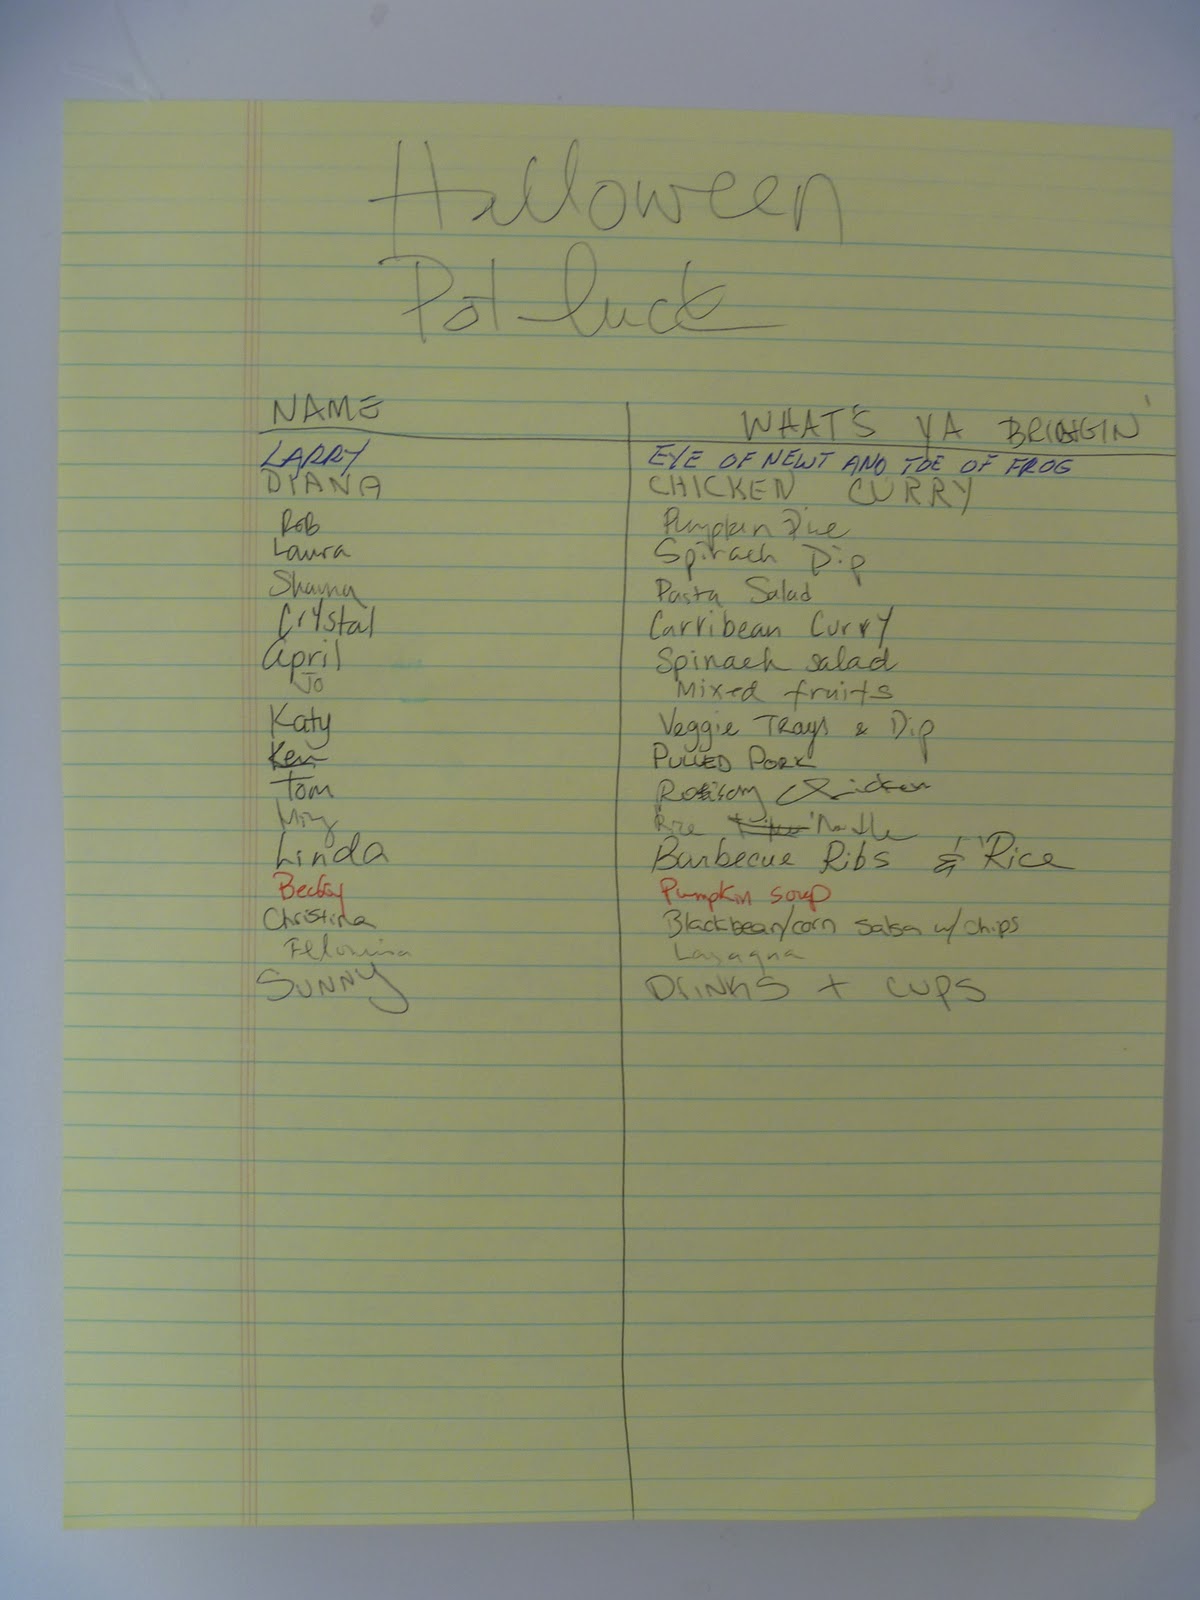 Halloween
Potluck
NAME WHAT'S YA BRINGIN'
LARRY EYE OF NEWT AND TOE OF FROG
DIANA CHICKEN CURRY
Rob Pumpkin
Laura Spinach Dip
Shauna Pasta Salad
Crystal Carribean Curry
April Spinach salad
Jo Mixed fruits
Katy Veggie Trays & Dip
Ken PULLED PORK
Tom Chicken
Rice Noodle
Linda Barbecue Ribs & "Rice
Becky Pumpkin soup
Christina Blackbean/corn salsa w/ chips
Lasagna
SUNNY DrINKS + CUPS